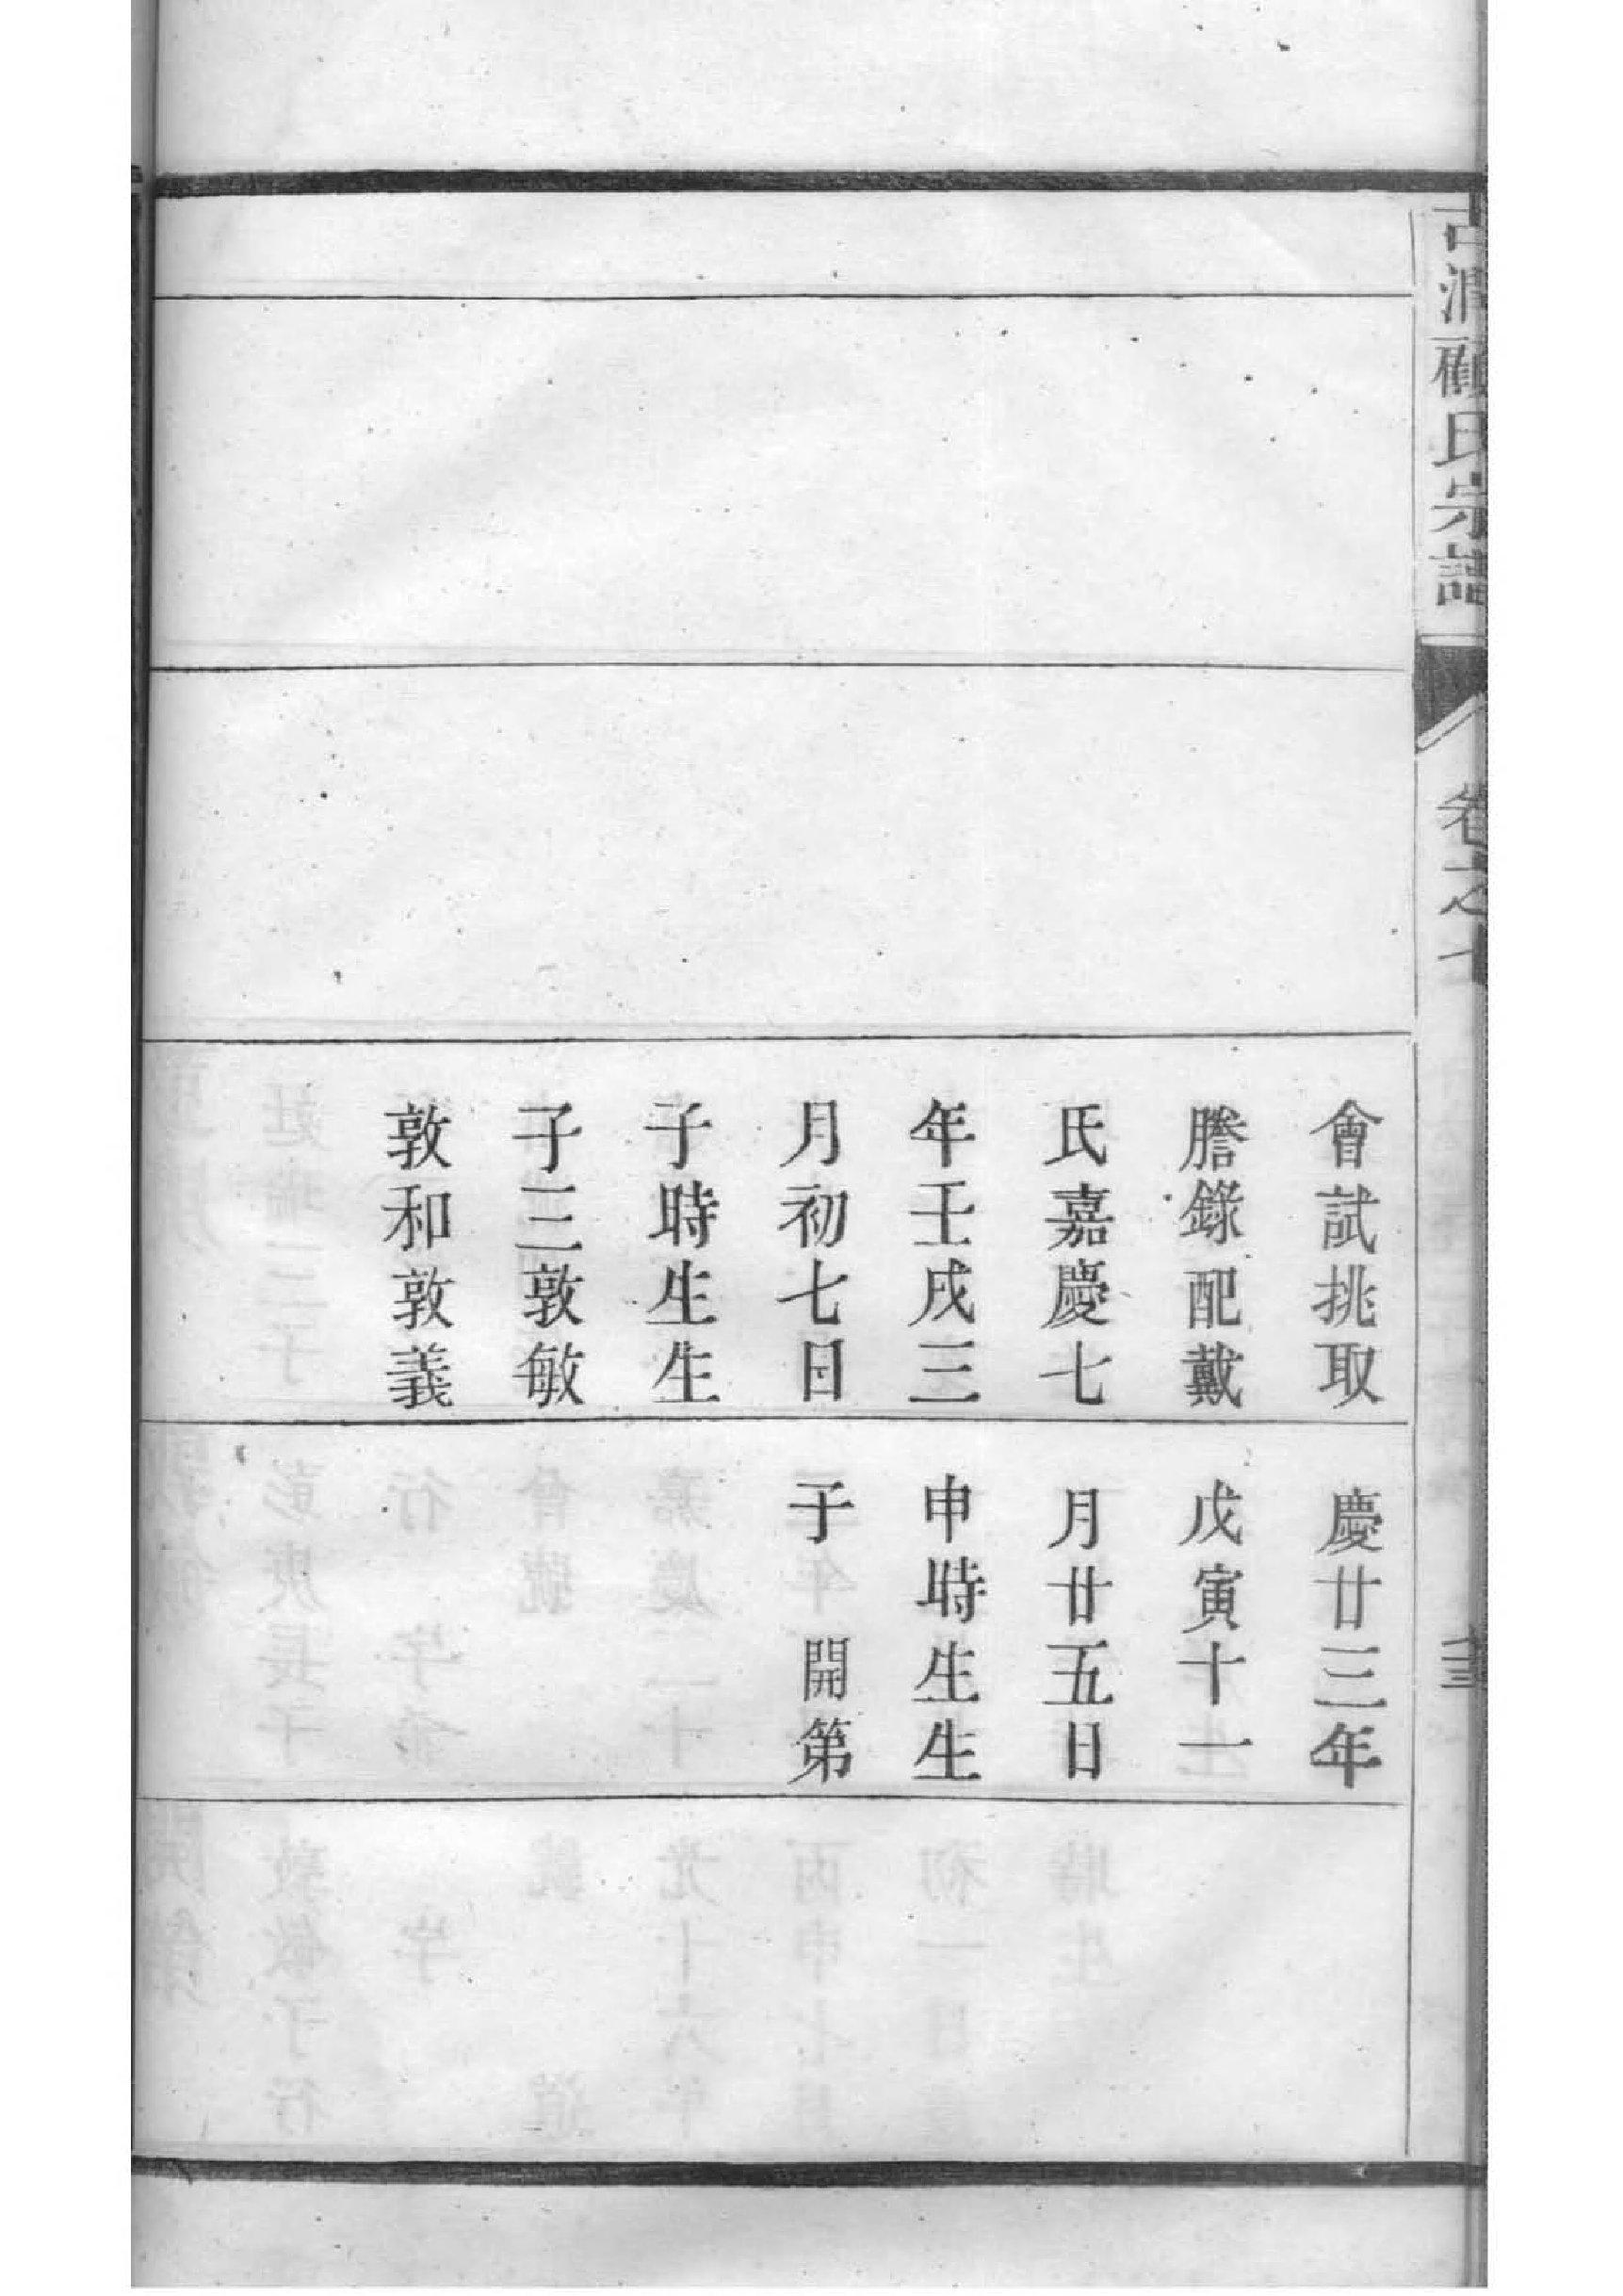 古潤顧氏宗譜
卷之七
會試挑取
謄錄配戴
氏嘉慶七
年壬戌三
月初七日
子時生生
子三敦敏
敦和敦義
慶廿三年
戊寅十一
月廿五日
申時生生
子　開第